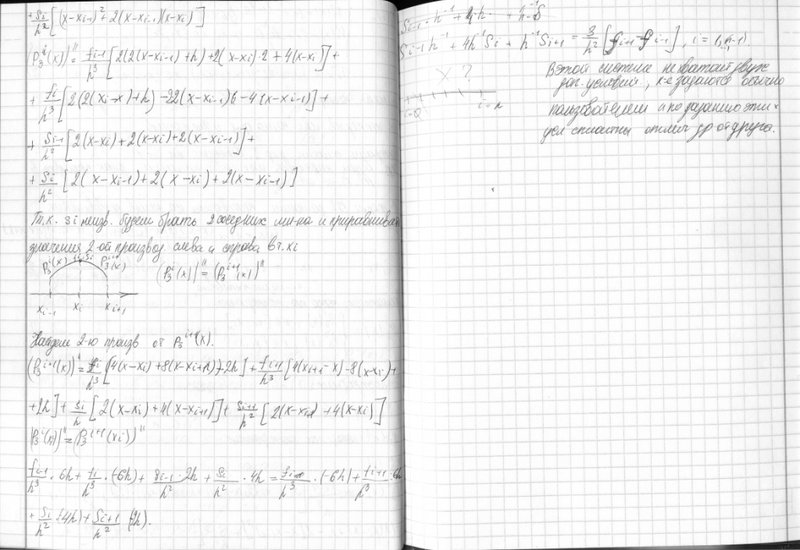 + Si/h² [(x-xi-1)² + 2(x-xi-1)(x-xi)]
(P₃ⁱ(x))'' = fi-1/h³ [2(2(x-xi-1)+h)+2(x-xi)·2+4(x-xi)] +
+ fi/h³ [2(2(xi-x)+h) - 2(x-xi-1) - 4(x-xi-1)] +
+ Si-1/h² [2(x-xi)+2(x-xi)+2(x-xi-1)] +
+ Si/h² [2(x-xi-1)+2(x-xi)+2(x-xi-1)]
Т.к. Si неизв. будем брать 2 соседних мн-на и приравнивать
значения 2-ой производ слева и справа в т. xi
P₃ⁱ(x) Si P₃ⁱ⁺¹(x)
(P₃ⁱ(x))'' = (P₃ⁱ⁺¹(x))''
xi-1 xi xi+1
Найдем 2-ю произв от P₃ⁱ⁺¹(x).
(P₃ⁱ⁺¹(x))'' = fi/h³ [4(x-xi)+8(x-xi+1)-2h] + fi+1/h³ [4(xi+1-x)-8(x-xi)+
+2h] + Si/h [2(x-xi)+4(x-xi+1)] + Si+1/h² [2(x-xi+1)+4(x-xi)]
(P₃ⁱ(x))'' = (P₃ⁱ⁺¹(xi))''
fi-1/h³ · 6h + fi/h³ · (-6h) + Si-1/h² · 2h + Si/h² · 4h = fi/h³ · (-6h) + fi+1/h³ · 6h
+ Si/h² (-4h) + Si+1/h² (-2h).
Si-1 · h⁻¹ + 4h⁻¹ + h⁻¹S
Si-1 h⁻¹ + 4h⁻¹ Si + h⁻¹ Si+1 = 3/h² [fi+1 - fi-1], i = 1, n-1
X ?
i=0 i=n
В этой системе не хватает двух
доп. условий, к-е задаются обычно
и по заданию этих
усл сплайны отлич др от друга.